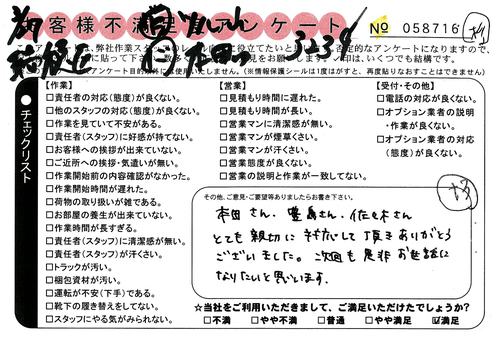 お客様不満足アンケート
№ 058716
チェックリスト
【作業】
□責任者の対応(態度)が良くない。
□他のスタッフの対応(態度)が良くない。
□作業を見ていて不安がある。
□責任者(スタッフ)に好感が持てない。
□お客様への挨拶が出来ていない。
□ご近所への挨拶・気遣いが無い。
□作業開始前の内容確認がなかった。
□作業開始時間が遅れた。
□荷物の取り扱いが雑である。
□お部屋の養生が出来ていない。
□作業時間が長すぎる。
□責任者(スタッフ)に清潔感が無い。
□責任者(スタッフ)が汗くさい。
□トラックが汚い。
□梱包資材が汚い。
□運転が不安(下手)である。
□靴下の履き替えをしてない。
□スタッフにやる気がみられない。
【営業】
□見積もり時間に遅れた。
□見積もり時間が長い。
□営業マンに清潔感が無い。
□営業マンが煙草くさい。
□営業マンが汗くさい。
□営業態度が良くない。
□営業の説明と作業が一致してない。
【受付・その他】
□電話の対応が良くない。
□オプション業者の説明
・作業が良くない。
□オプション業者の対応
(態度)が良くない。
その他、ご意見・ご要望等ありましたらお書き下さい。
本田さん、豊島さん、佐々木さん
とても親切に対応して頂きありがとう
ございました。次回も是非お世話に
なりたいと思います。
☆当社をご利用いただきまして、ご満足いただけたでしょうか?
□不満 □やや不満 □普通 □やや満足 ☑満足